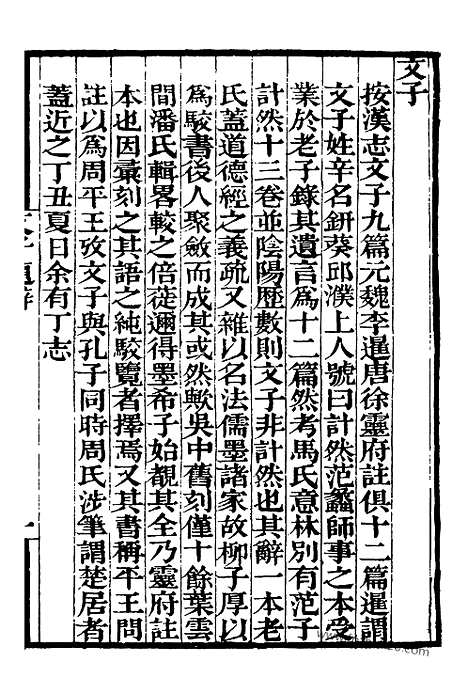 文子
按漢志文子九篇元魏李暹唐徐靈府註俱十二篇暹謂
文子姓辛名銒葵邱濮上人號曰計然范蠡師事之本受
業於老子錄其遺言爲十二篇然考馬氏意林別有范子
計然十三卷並陰陽歷數則文子非計然也其辭一本老
氏蓋道德經之義疏又雜以名法儒墨諸家故柳子厚以
爲駮書後人聚斂而成其或然歟吳中舊刻僅十餘葉雲
間潘氏輯畧較之倍蓰邇得墨希子始覩其全乃靈府註
本也因彙刻之其語之純駮覽者擇焉又其書稱平王問
註以爲周平王攷文子與孔子同時周氏涉筆謂楚居者
蓋近之丁丑夏日余有丁志
文子 題辭
一